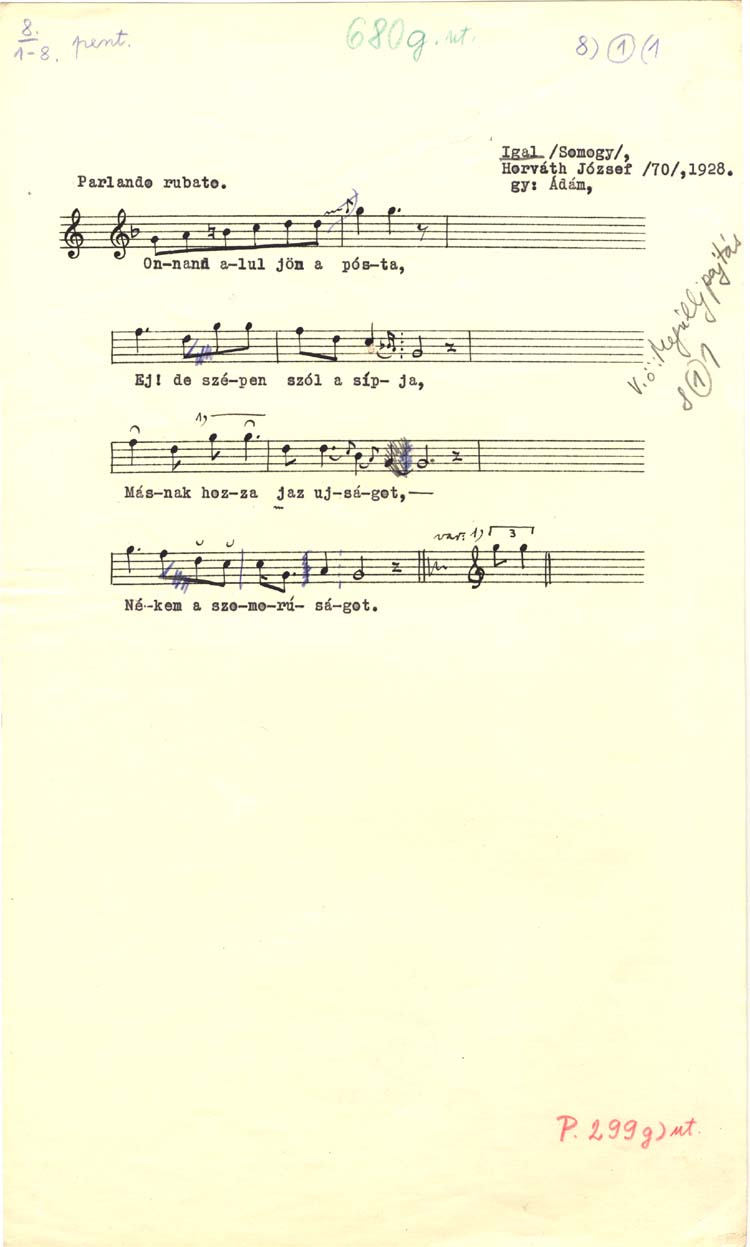 8.
1-8. pent.
680g. ut.
8) ① (1
Igal /Somogy/,
Horváth József /70/,1928.
gy: Ádám,
Parlando rubato.
On-nand a-lul jön a pós-ta,
V.ö.: pajtás
8 ① 1
Ej! de szé-pen szól a síp- ja,
1)
Más-nak hoz-za jaz uj-sá-got,—
var. 1) 3
Né-kem a szo-mo-rú- sá-got.
P. 299g) ut.